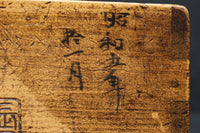 昭和五年
拾一月